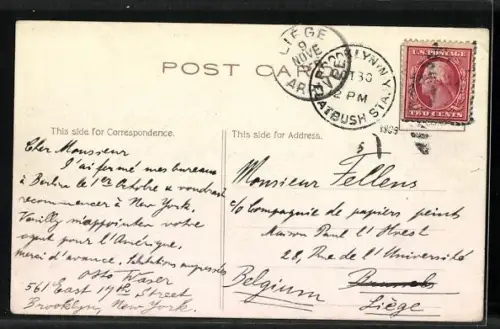 POST CARD
LIEGE
9
NOVE
ARRIVEE
BROOKLYN N.Y.
OCT 30
2 PM
FLATBUSH STA.
1909
U.S. POSTAGE
TWO CENTS
This side for Correspondence.
Cher Monsieur
J'ai fermé mes bureaux
à Berlin le 1er Octobre et voudrais
recommencer à New York.
Veuillez m'appointer votre
agent pour l'Amérique,
merci d'avance. Salutations empressées
Otto Waser
561 East 19th Street
Brooklyn, New York.
This side for Address.
5
Monsieur Fellens
c/o Compagnie de papiers peints
Maison Paul l'Horest
28, Rue de l'Université
Brussels
Belgium Liège